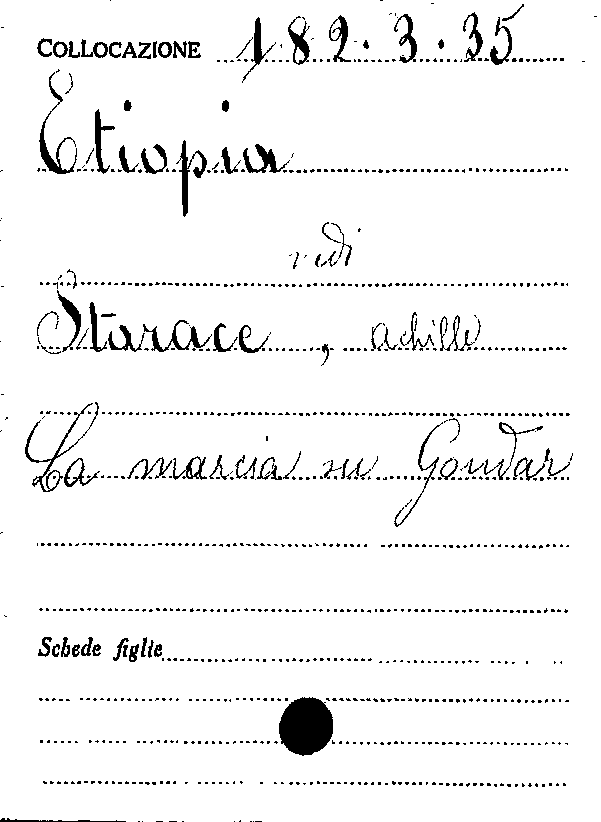 COLLOCAZIONE 182.3.35
Etiopia
vedi
Starace, Achille
La marcia su Gondar
Schede figlie